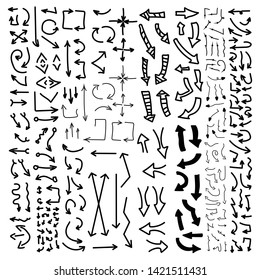 shutterstock.com · 1421511431